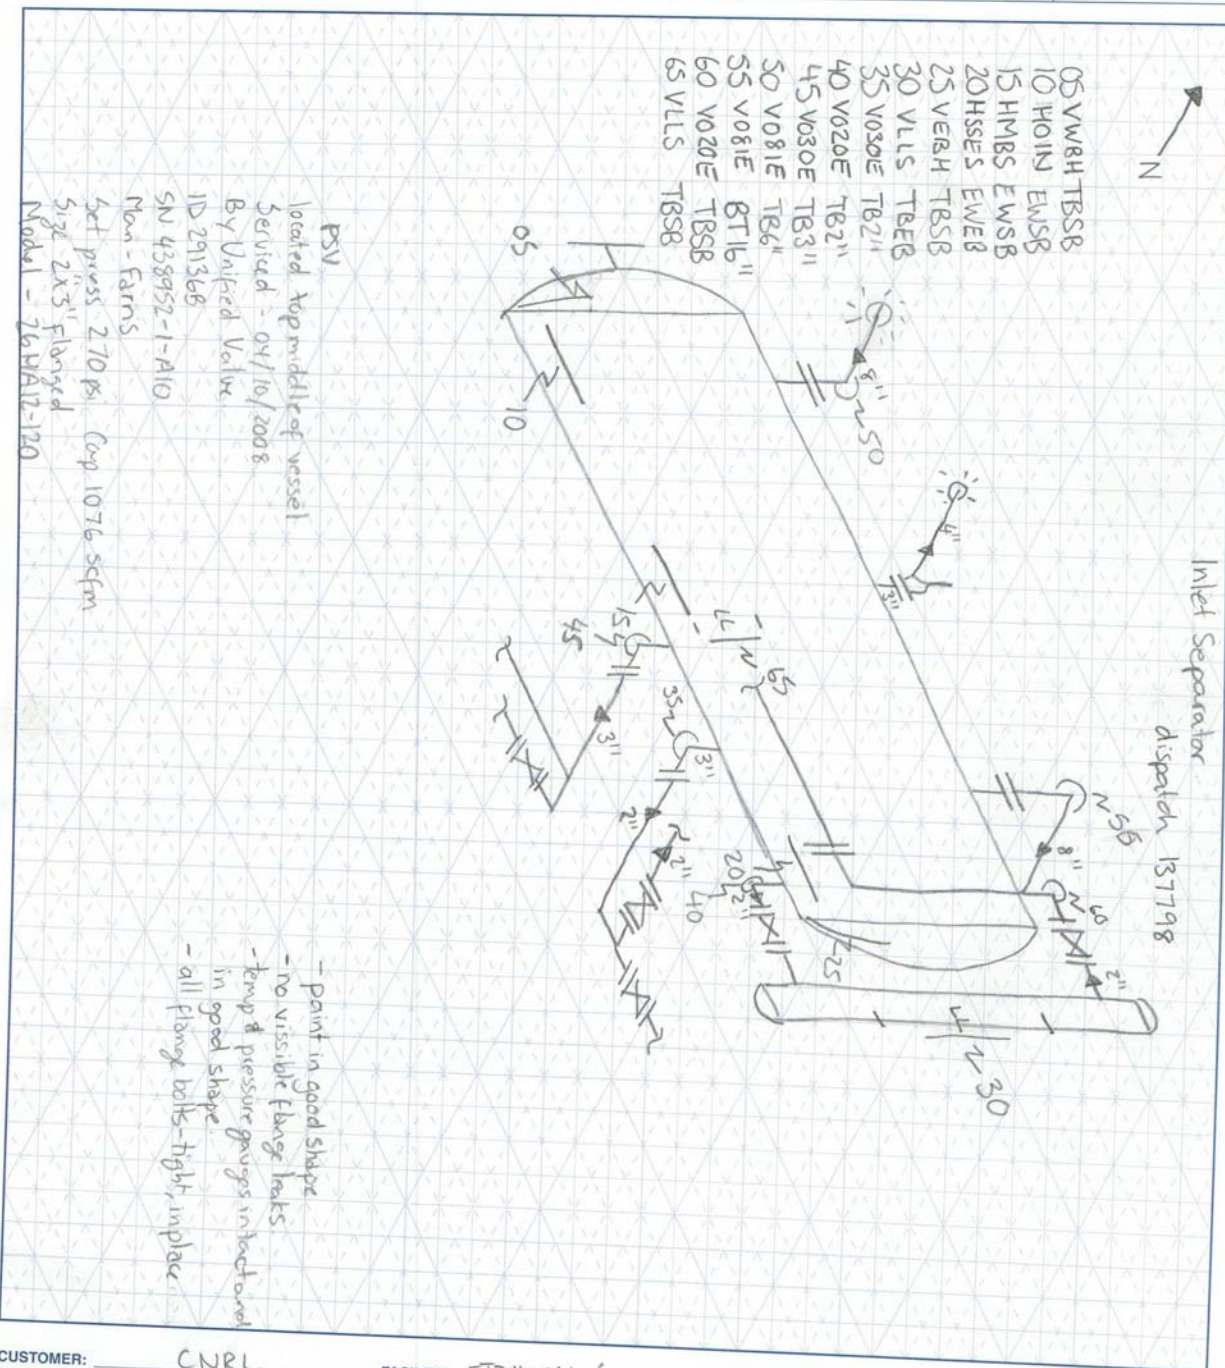 N
Inlet Separator
dispatch 137798
05 VWBH TBSB
10 HOIN EWSB
15 HMBS EWSB
20 HSSES EWEB
25 VEBH TBSB
30 VLLS TBEB
35 VO30E TB2"
40 VO20E TB2"
45 VO30E TB3"
50 VO81E TB6"
55 VO81E BT16"
60 VO20E TBSB
65 VLLS TBSB
05
10
8"
50
4"
3"
15
45
3"
LL
65
35
3"
2"
2"
40
20
2"
25
55
8"
60
2"
30
PSV
located top middle of vessel
Serviced - 04/10/2008
By Unified Valve
ID 29136B
SN 438952-1-A10
Man - Farris
Set press 270 psi Cap 1076 scfm
Size 2"x3" flanged
Model - 26HA12-120
- paint in good shape
- no vissible flange leaks
- temp & pressure gauges intact and
in good shape
- all flange bolts-tight, inplace
CUSTOMER: CNRL